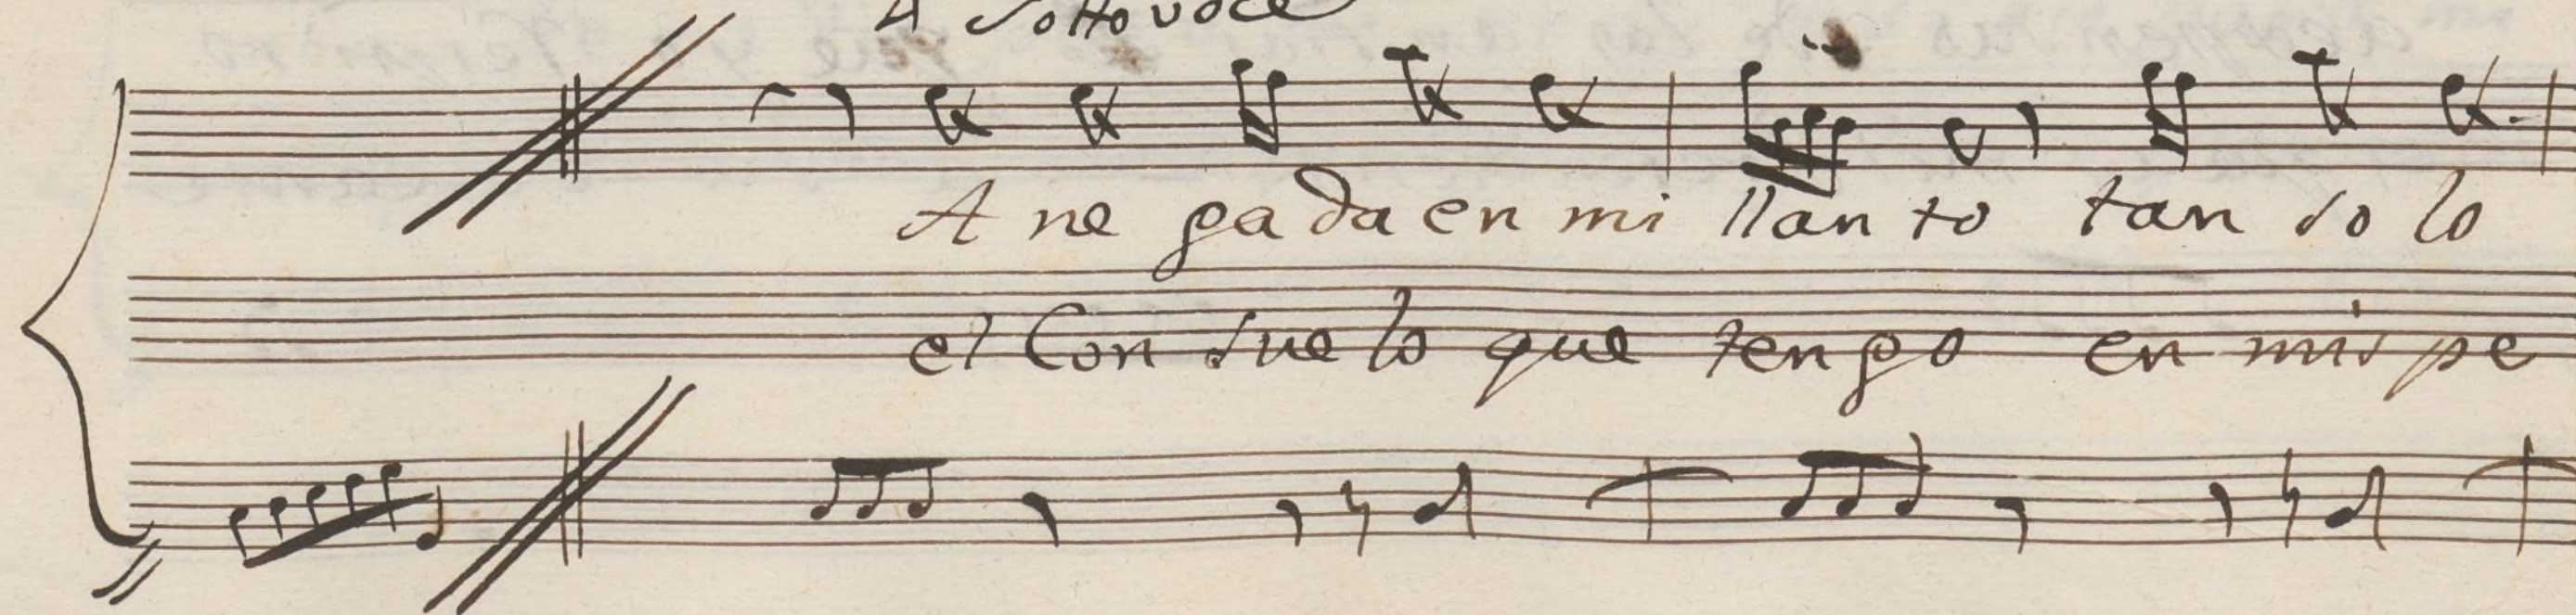 A Sotto voce
A ne ga da en mi llan to tan so lo
el Con sue lo que ten go en mis pe